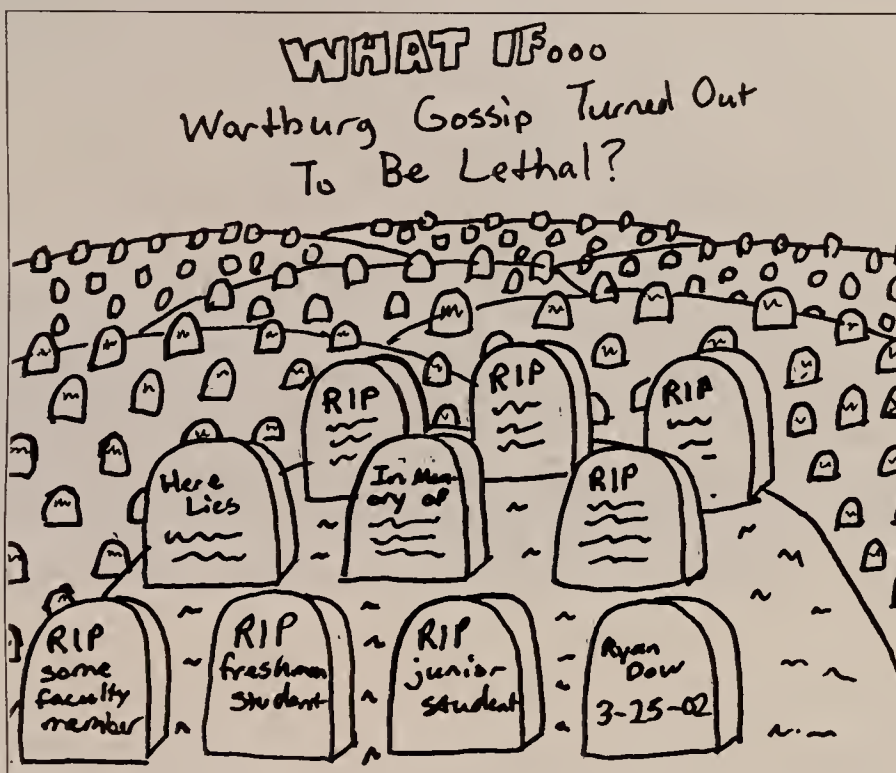 WHAT IF...
Wartburg Gossip Turned Out
To Be Lethal?
RIP
RIP
RIP
Here
Lies
In Mem-
ory of
RIP
RIP
some
faculty
member
RIP
freshman
student
RIP
junior
student
Ryan
Dow
3-25-02